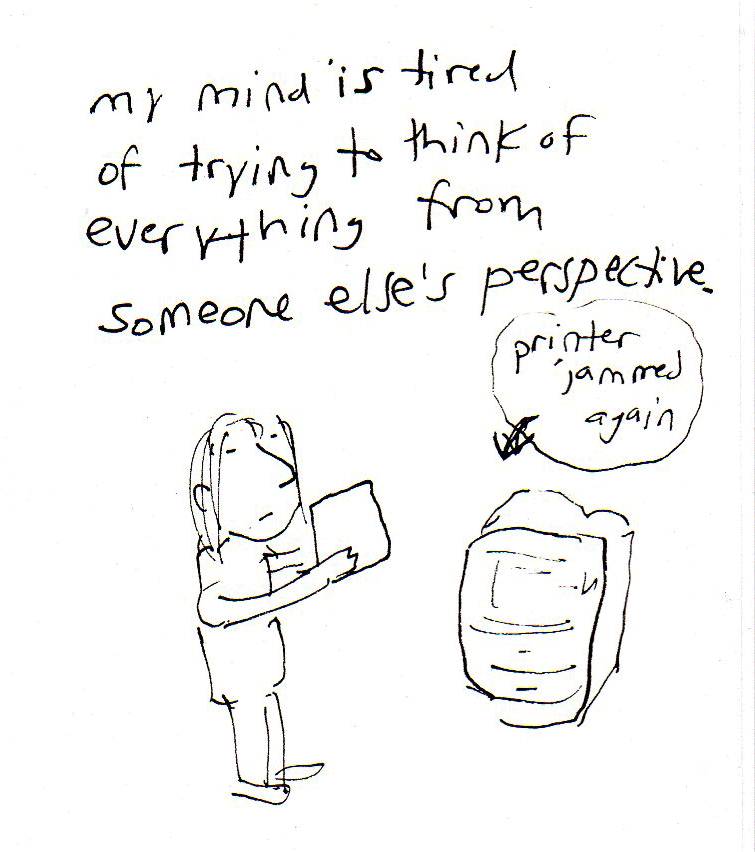 my mind is tired
of trying to think of
everything from
someone else's perspective.
printer
jammed
again